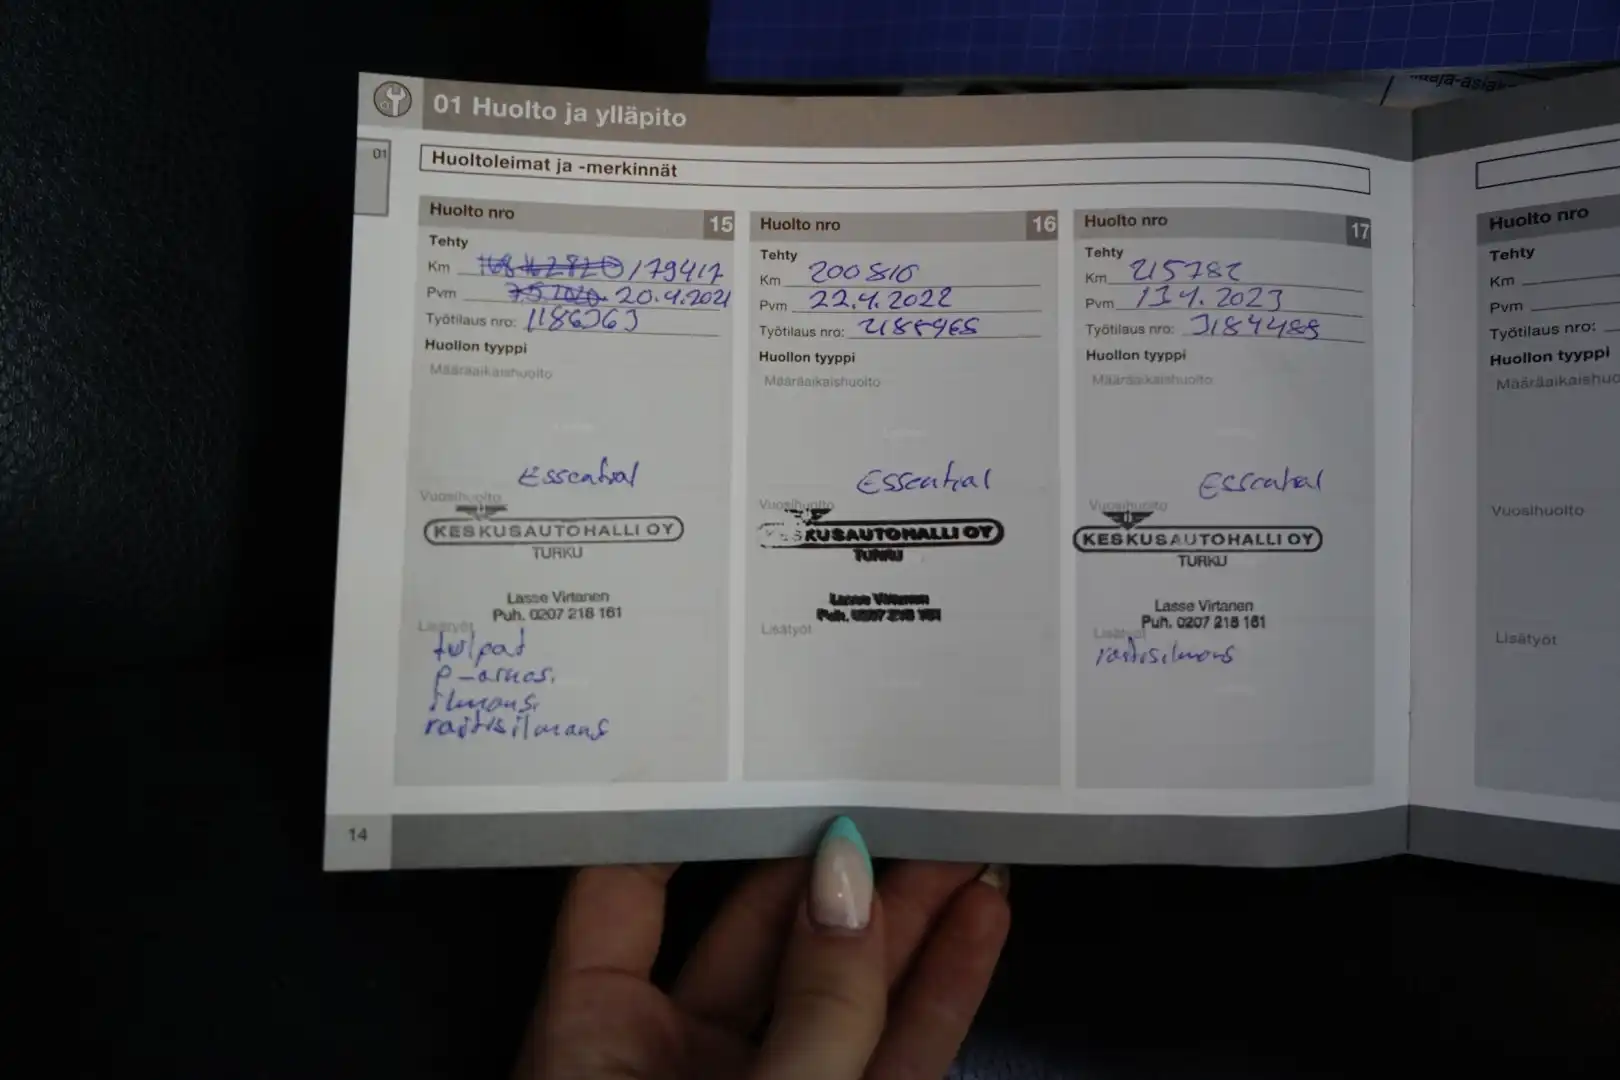 01 Huolto ja ylläpito
01
Huoltoleimat ja -merkinnät
Huolto nro 15
Tehty
Km /179417
Pvm 20.4.2021
Työtilaus nro: 1186363
Huollon tyyppi
Määräaikaishuolto
Essential
Vuosihuolto
KESKUSAUTOHALLI OY
TURKU
Lasse Virtanen
Puh. 0207 218 161
Lisätyöt
tulpat
ilmans.
raitisilmans
Huolto nro 16
Tehty
Km 200816
Pvm 22.4.2022
Työtilaus nro:
Huollon tyyppi
Määräaikaishuolto
Essential
Vuosihuolto
KESKUSAUTOHALLI OY
TURKU
Lasse Virtanen
Puh. 0207 218 161
Lisätyöt
Huolto nro 17
Tehty
Km 215782
Pvm 13.4.2023
Työtilaus nro: 3184488
Huollon tyyppi
Määräaikaishuolto
Essential
Vuosihuolto
KESKUSAUTOHALLI OY
TURKU
Lasse Virtanen
Puh. 0207 218 161
Lisätyöt
raitisilmans
14
Huolto nro
Tehty
Km
Pvm
Työtilaus nro:
Huollon tyyppi
Vuosihuolto
Lisätyöt